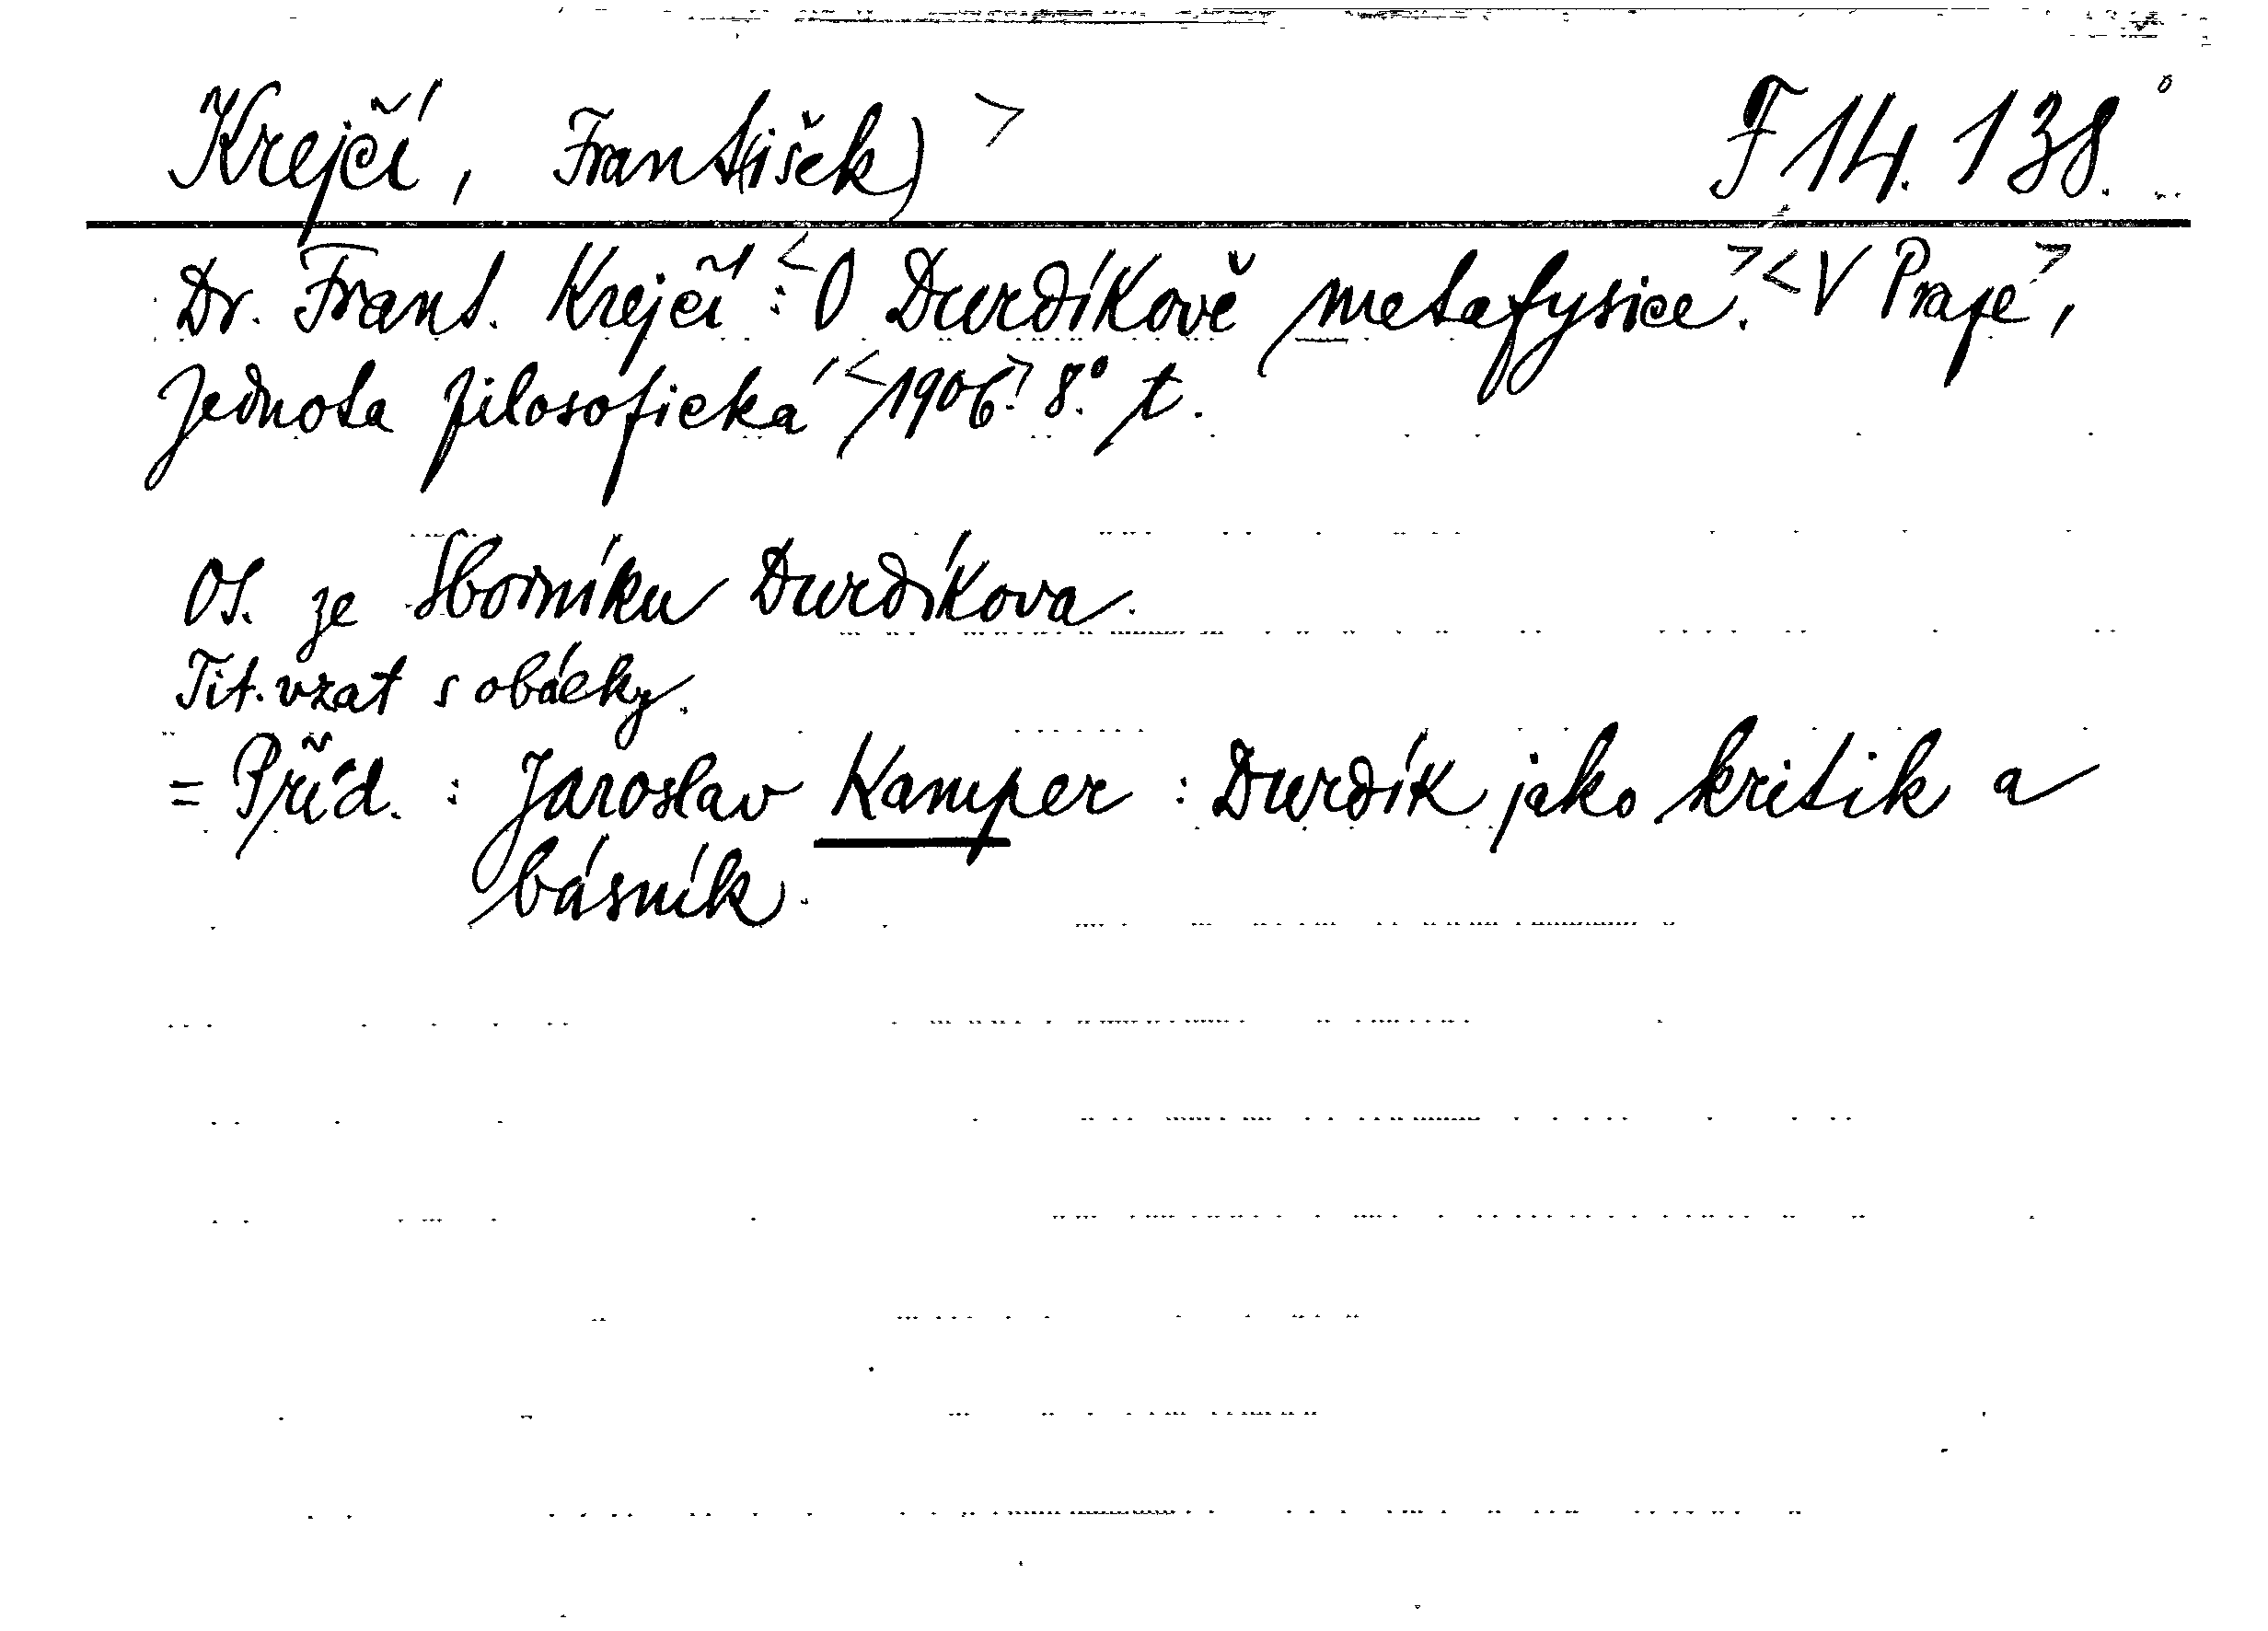 Krejčí, František) > F 14. 138.
Dr. Frant. Krejčí : <O Durdíkově metafysice.> <V Praze>,
Jednota filosofická <1906.> 8.° t.
Ot. ze Sborníku Durdíkova.
Tit. vzat s obálky.
= Příd. : Jaroslav Kamper : Durdík jako kritik a
básník.